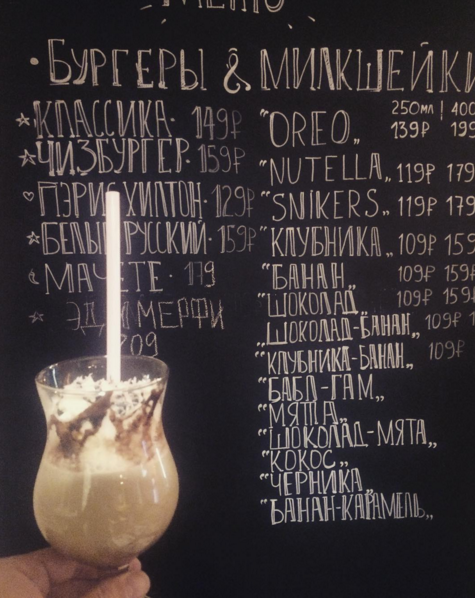 МЕНЮ
• БУРГЕРЫ & МИЛКШЕЙКИ
КЛАССИКА · 149₽
ЧИЗБУРГЕР · 159₽
ПЭРИС ХИЛТОН · 129₽
БЕЛЫЙ РУССКИЙ · 159₽
МАЧЕТЕ · 179
ЭДДИ МЕРФИ
209
250мл | 400
"OREO„ 139₽ 199
"NUTELLA„ 119₽ 179
"SNIKERS„ 119₽ 179
"КЛУБНИКА„ 109₽ 159
"БАНАН„ 109₽ 159
"ШОКОЛАД„ 109₽ 159
„ШОКОЛАД-БАНАН„ 109₽ 1
"КЛУБНИКА-БАНАН„ 109₽
"БАБЛ-ГАМ„
"МЯТА„
"ШОКОЛАД-МЯТА„
"КОКОС„
"ЧЕРНИКА„
"БАНАН-КАРАМЕЛЬ„